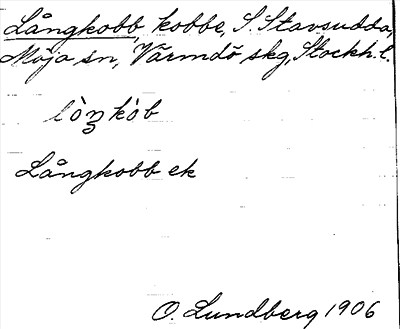 Långkobb, kobbe, S. Stavsudda,
Möja sn, Värmdö skg, Stockh. l.
lòŋkòb
Långkobb ek
O. Lundberg 1906